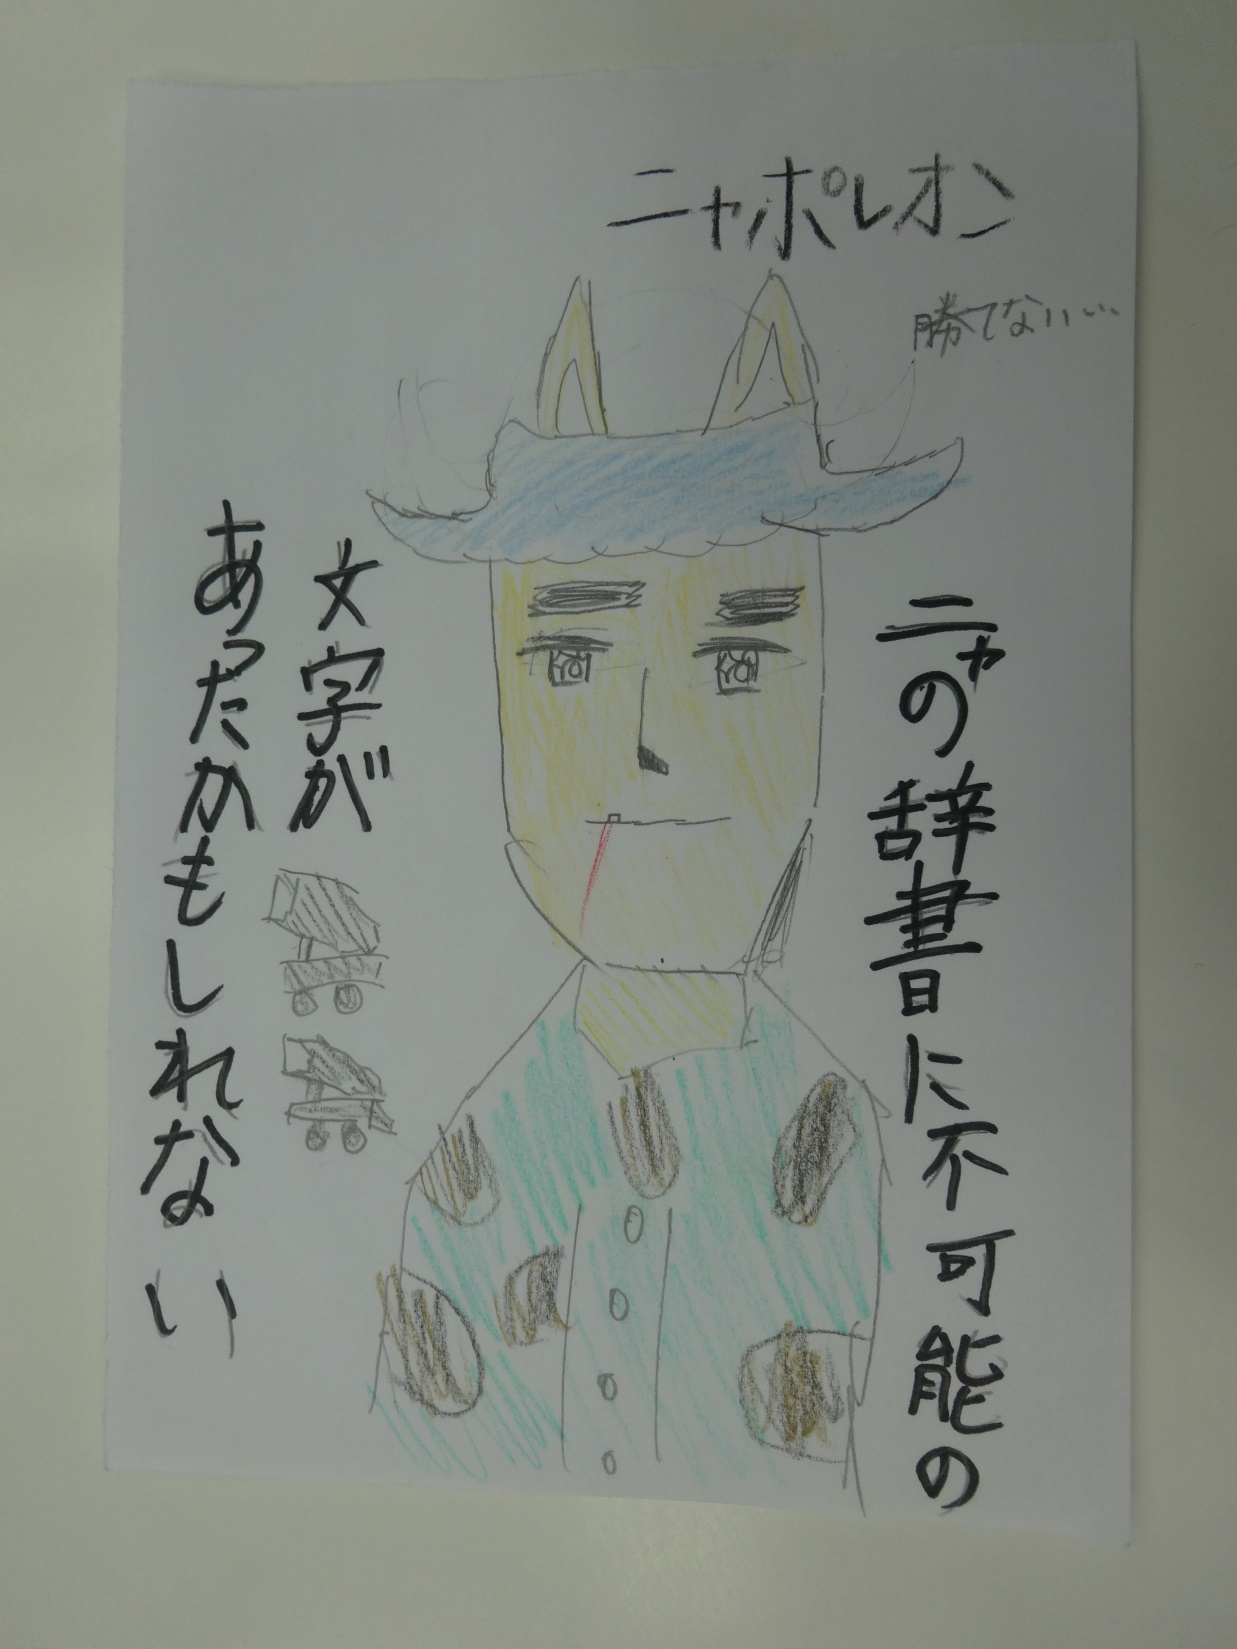 ニャポレオン
勝てないい…
ニャの辞書に不可能の
文字が
あったかもしれない